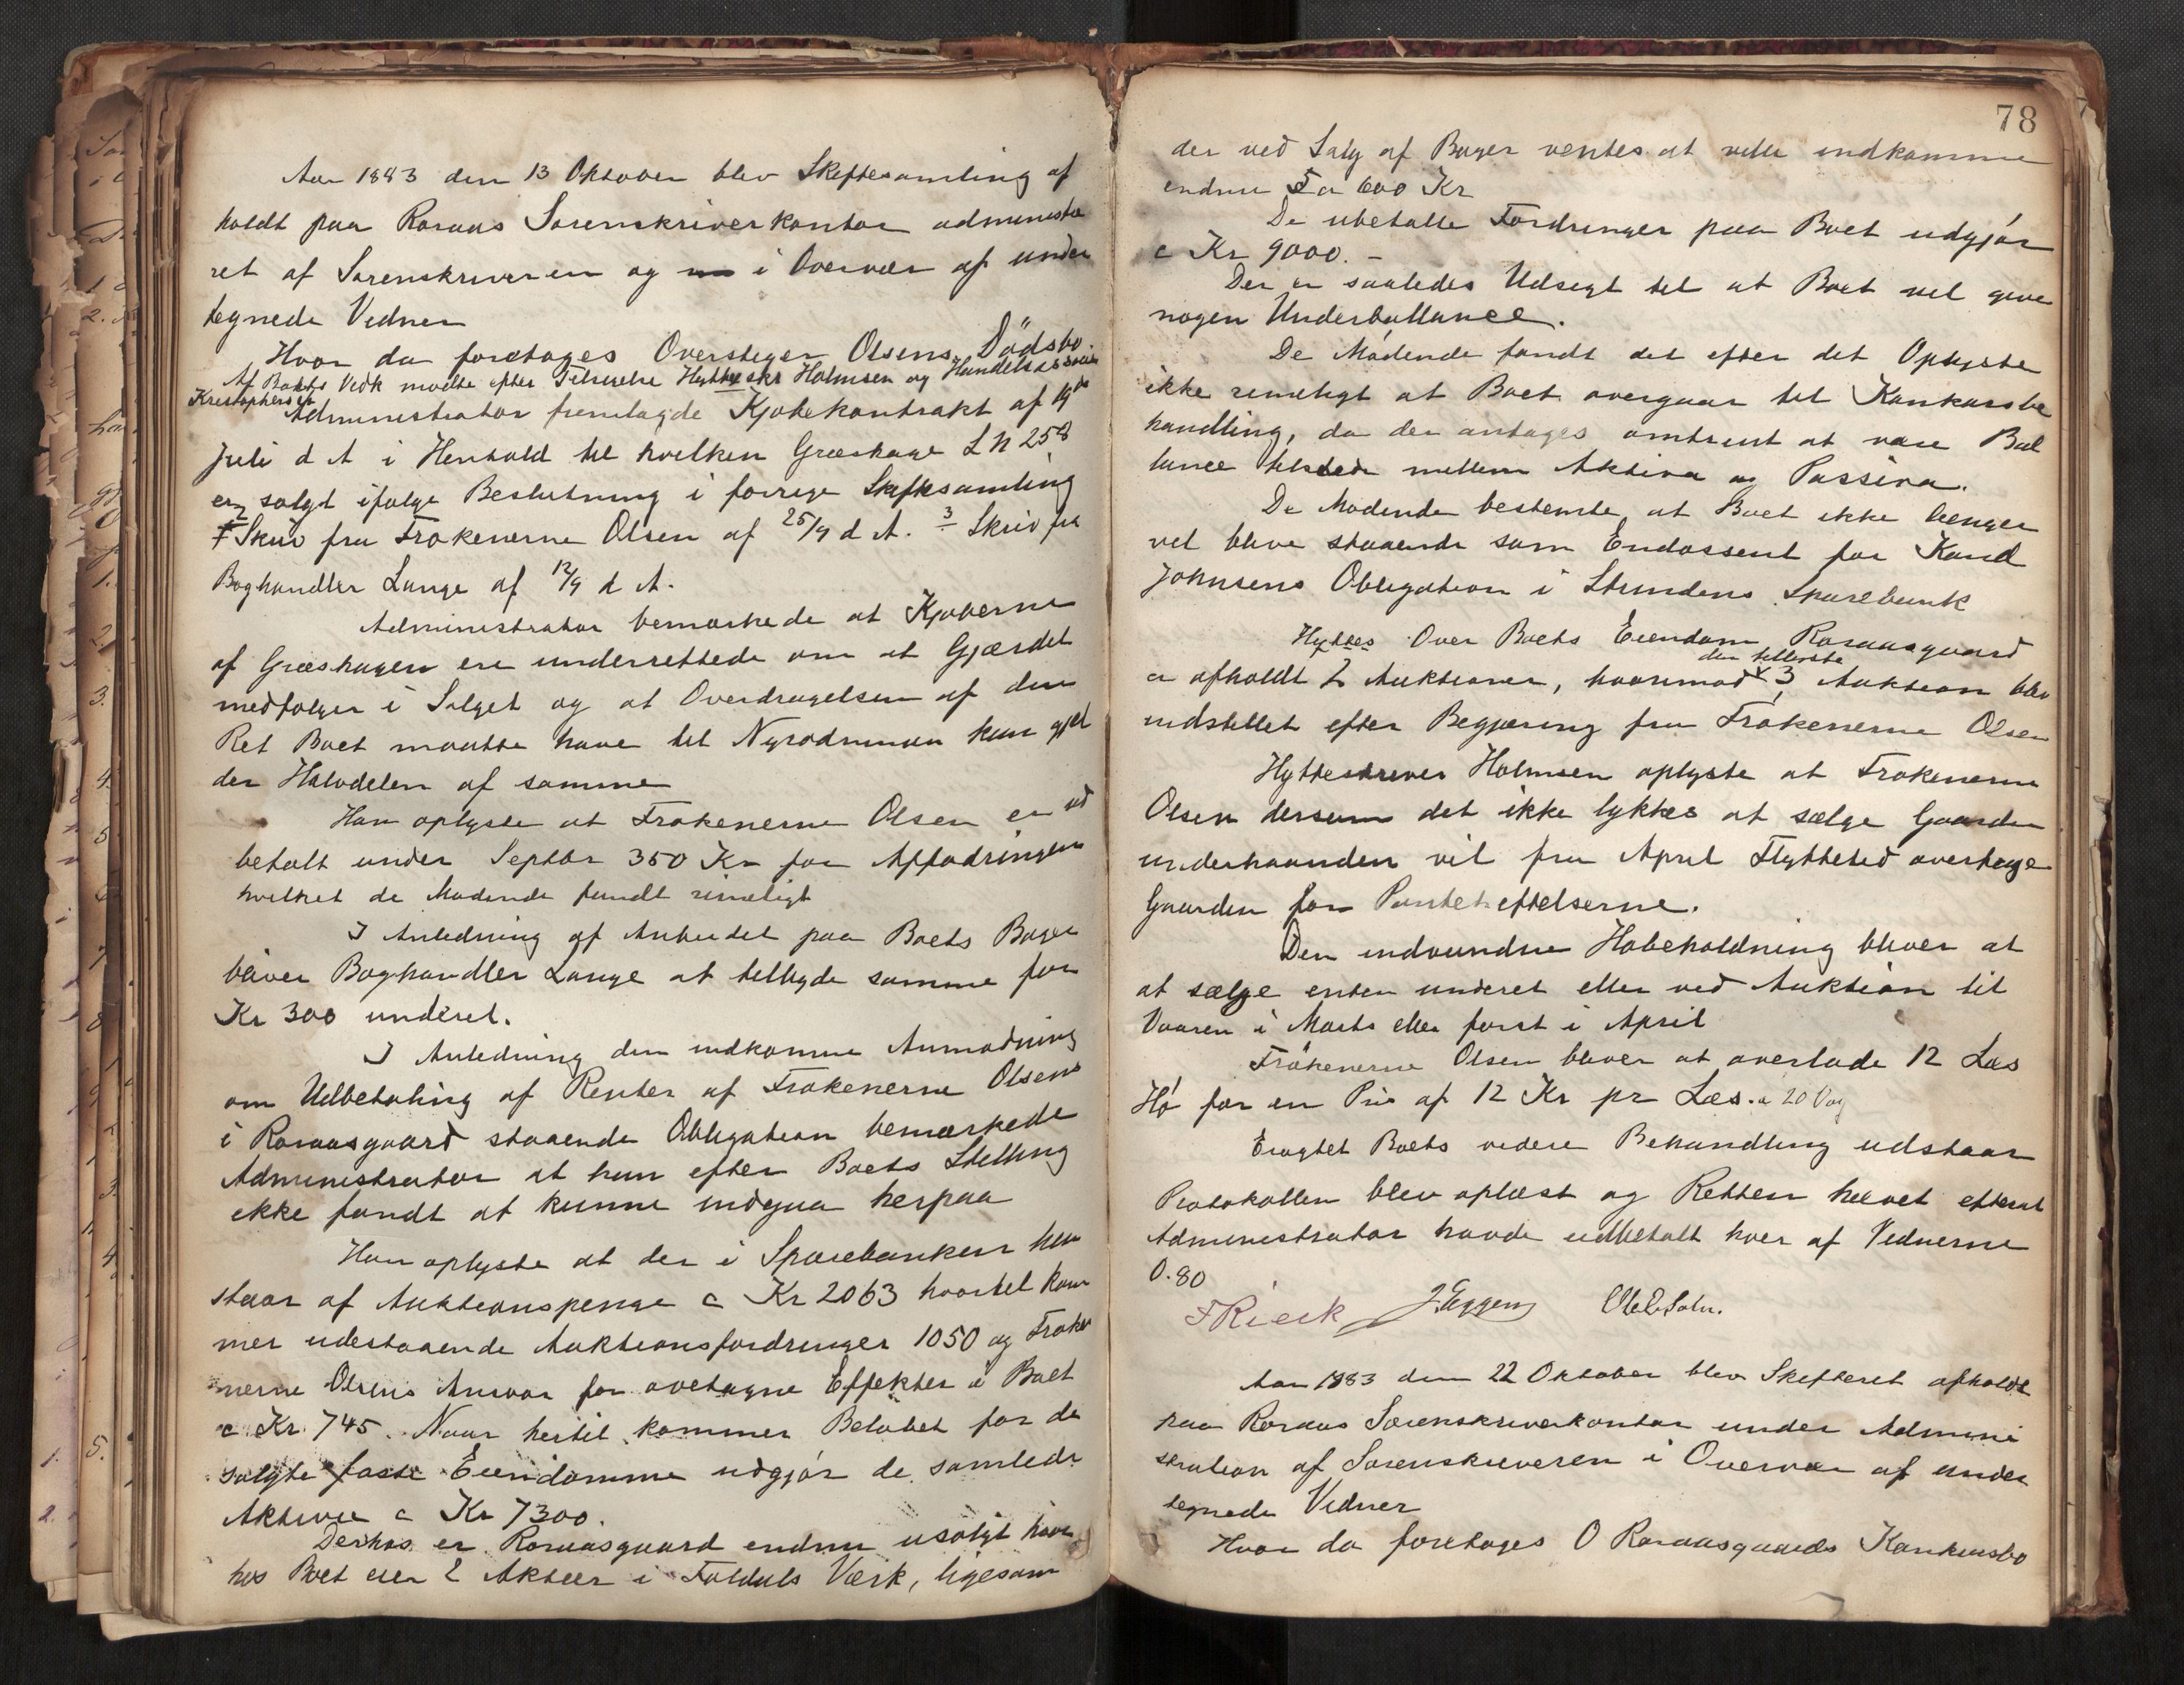 Aar 1883 den 13 Oktober blev Skiftesamling af
holdt paa Roraas Sorenskriverkontor administre
ret af Sorenskriveren og i Overvær af under
tegnede Vidner
Hvor da foretoges Overstiger Olsens Dödsbo.
Af Boets Vedk mødte efter Tilsigelse Hytteskr Holmsen og Handels
Kristophersen
Administrator fremlagde Kjøbekontrakt af 19de
Juli d A i Henhold til hvilken Græshage L N 258
er solgt ifølge Beslutning i forrige Skiftesamling
2 Skriv fra Frøkenerne Olsen af 25/9 d A. 3 Skriv fra
Boghandler Lange af 12/9 d A.
Administrator bemærkede at Kjøberne
af Græshagen ere underrettede om at Gjærdet
medfølger i Salget og at Overdragelsen af den
Ret Boet maatte have til Nyrødning kun gjel
der Halvdelen af samme
Han oplyste at Frøkenerne Olsen er ud
betalt under Septbr 350 Kr for Affodringen
hvilket de Mødende fandt rimeligt
I Anledning af Anbudet paa Boets Bøger
bliver Boghandler Lange at tilbyde samme for
Kr 300 underet.
I Anledning den indkomne Anmodning
om Udbetaling af Renter af Frøkenerne Olsens
i Roraasgaard staaende Obligation bemærkede
Administrator at han efter Boets Stilling
ikke fandt at kunne indgaa herpaa
Han oplyste at der i Sparebanken hen
staar af Auktionspenge c Kr 2063 hvortil kom
mer udestaaende Auktionsfordringer 1050 og Frøke
nerne Olsens Ansvar for overtagne Effekter i Boet
c Kr. 745. Naar hertil kommer Beløbet for de
solgte faste Eiendomme udgjør de samlede
Aktiver c Kr 7300.
Derhos er Roraasgaard endnu usolgt hvor
hos Boet eier 2 Aktier i Foldals Værk, ligesom
78
der ved Salg af Bøger ventes at ville indkomme
endnu 600 Kr
De ubetalte Fordringer paa Boet udgjør
c Kr 9000. -
Der er saaledes Udsigt til at Boet vil give
nogen Underballance.
De Mødende fandt det efter det Oplyste
ikke rimeligt at Boet overgaar til Konkursbe
handling, da der antages omtrent at være Bal
lance tilstede mellem Aktiva og Passiva.
De Mødende bestemte at Boet ikke længer
vil blive staaende som Endossent for Kand
Johnsens Obligation i Strindens Sparebank
Hyttes Over Boets Eiendom Roraasgaard
den tillyste
er afholdt 2 Auktioner, hvorimod 3 Auktion blev
indstillet efter Begjæring fra Frøkenerne Olsen
Hytteskriver Holmsen oplyste at Frøkenerne
Olsen dersom det ikke lykkes at sælge Gaarden
underhaanden vil fra April Flyttetid overtage
Gaarden for Panteheftelserne.
Den indvundne Høbeholdning bliver at
at sælge enten underet eller ved Auktion til
Vaaren i Marts eller først i April
Frökenerne Olsen bliver at overlade 12 Læs
Hø for en Pris af 12 Kr pr Læs. a 20 Vog
Eragtet Boets videre Behandling udstaar
Protokollen blev oplæst og Retten hævet efterat
Administrator havde udbetalt hver af Vidnerne
0.80
F Rieck J Eggen
Aar 1883 den 22 Oktober blev Skifteret afholdt
paa Roraas Sorenskriverkontor under Admini
stration af Sorenskriveren i Overvær af under
tegnede Vidner
Hvor da foretoges O Roraasgaards Konkursbo